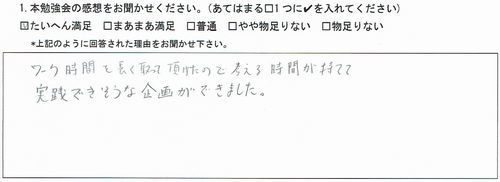 1. 本勉強会の感想をお聞かせください。(あてはまる□1つに✔を入れてください)
☑たいへん満足 □まあまあ満足 □普通 □やや物足りない □物足りない
*上記のように回答された理由をお聞かせ下さい。
ワーク時間を長く取って頂けたので考える時間が持てて
実践できそうな企画ができました。